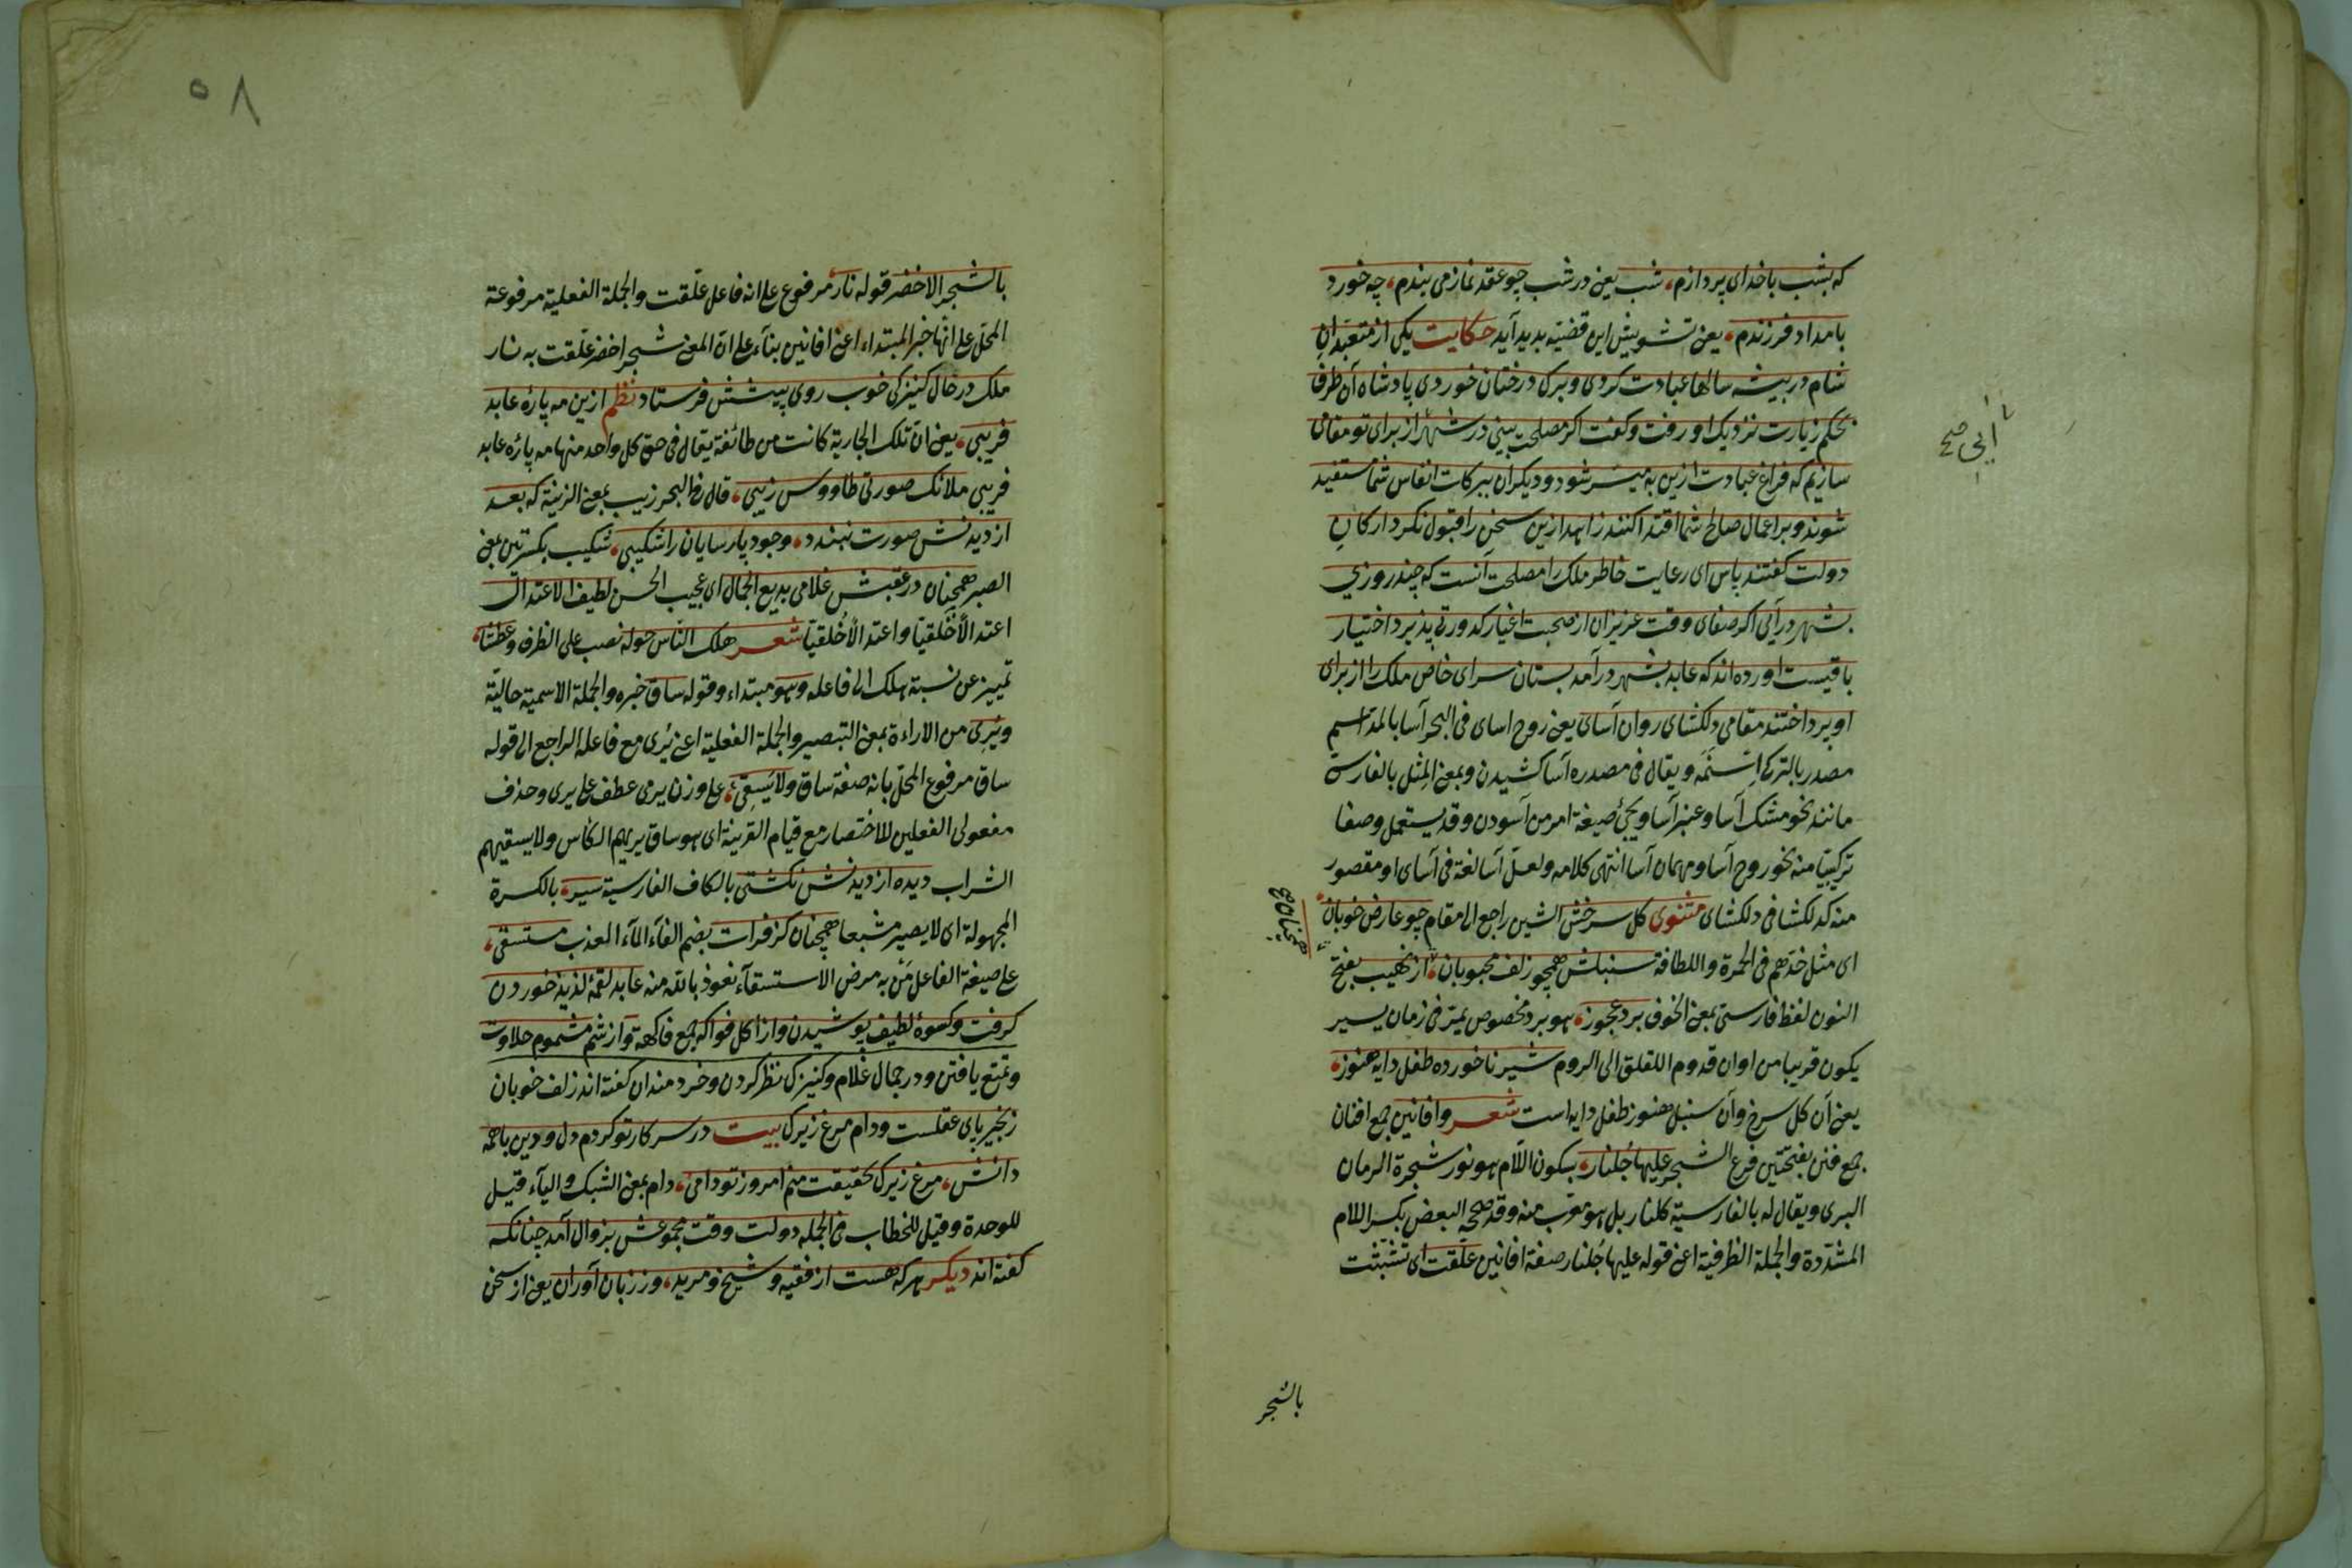 که بشب باخدای پردازم، شب یعنی در شب چو عقد نماز می بندم، چه خورد
بامداد فرزندم، یعنی تشویش این قضیه بدید آید حکایت یکی از متعبدانِ
شام در بیشه سالها عبادت کردی و برک درختان خوردی پادشاه آن طرف
بحکم زیارت نزدیک او رفت و کفت اکر مصلحت بینی در شهر از برای تو مقامی
سازیم که فراغ عبادت ازین به میسّر شود و دیکران ببرکات انفاس شما مستفید
شوند و براعمال صالح شما اقتدا کنند زاهد ازین سخن را قبول نکرد ارکانِ
دولت کفتند پاس ای رعایت خاطر ملک را مصلحت آنست که چند روزی
بشهر درآیی اکر صفای وقت عزیزان از صحبت اغیار کدورتی پذیرد اختیار
باقیست اورده اند که عابد بشهر درآمد بستان سرای خاص ملک را از برای
او بپرداختند مقامی دلکشای روان آسای یعنی روح اسای فی البحر آسا بالمد اسم
مصدر بالترکی اسنمه ویقال فی مصدره آسا کشیدن وبمعنی المِثل بالفارسی
مانند نحو مشک آسا وعنبر آسا ویجئ صیغة امر من آسودن وقد یستعمل وصفا
ترکیبیّا منه نحو روح آسا ومهمان آسا انتهی کلامه ولعلّ آسا لغة فی آسای او مقصور
منه کدلکشا فی دلکشای مثنوی کل سرخش الشین راجع الی مقام چو عارض خوبان
ای مثل خدّهم فی الحمرة واللطافة سنبلش همچو زلف محبوبان، از نهیب بفتح
النون لفظ فارسی بمعنی الخوف برد عجوز، هو برد مخصوص یمتر فی زمان یسیر
یکون قریبا من اوان قدوم اللقلق الی الروم شیر ناخورده طفل دایه هنوز،
یعنی آن کل سرخ وآن سنبل هنوز طفل دایه است شعر وافانین جمع افنان
جمع فنن بفتحتین فرع الشجر علیها جُلنار، بسکون اللّام هو نور شجرة الرمان
البری ویقال له بالفارسیة کلنار بل هو معرّب منه وقد صحّحه البعض بکسر اللام
المشدّدة والجملة الظرفیة اعنی قوله علیها جُلنار صفة افانین عُلّقت ای تشبّثت
ایی صح
همچنان صح
بالشجر
٥٨
بالشجر الاخضر قوله نار مرفوع علی انه فاعل علّقت والجملة الفعلیة مرفوعة
المحلّ علی انها خبر المبتداء اعنی افانین بناء علی انّ المعنی شجر اخضر علّقت به نار
ملک در حال کنیزکی خوب روی پیشش فرستاد نظم ازین مه پارۀ عابد
فریبی، یعنی انّ تلک الجاریة کانت من طائفة یقال فی حق کل واحد منها مه پارۀ عابد
فریبی ملائک صورتی طاووس زیبی، قال فی البحر زیب بمعنی الزینة که بعد
از دیدنش صورت نبندد، وجود پارسایان را شکیبی، شکیب بکسرتین بمعنی
الصبر همچنان در عقبش غلامی بدیع الجمال ای عجیب الحسن لطیف الاعتدال
اعتدالًا خَلقیّا واعتدالًا خُلقیّا شعر هلک النّاس حوله نصب علی الظرف وعطشا،
تمییز عن نسبة هلک الی فاعله وهو مبتداء وقوله ساق خبره والجملة الاسمیة حالیّة
ویُرِی من الاراءة بمعنی التبصیر والجملة الفعلیة اعنی یُری مع فاعله الراجع الی قوله
ساق مرفوع المحلّ بانه صفة ساق ولا یَسقِی، علی وزن یرمی عطف علی یری وحذف
مفعولی الفعلین للاختصار مع قیام القرینة ای هو ساق یریهم الکاس ولا یسقیهم
الشراب دیده از دیدنش نکشتی بالکاف الفارسیة سیر، بالکسرة
المجهولة ای لا یصیر مشبعا همچنان کز فرات بضم الفآء المآء العذب مستسقی،
علی صیغة الفاعل مَن به مرض الاستسقآء نعوذ بالله منه عابد لقمۀ لذیذ خوردن
کرفت وکسوۀ لطیف پوشیدن واز اکل فواکه جمع فاکهة واز شم مشموم حلاوت
وتمتع یافتن ودر جمال غلام وکنیزک نظر کردن وخردمندان کفته اند زلف خوبان
زنجیر پای عقلست ودام مرغ زیرک بیت در سر کار تو کردم دل و دین باهمه
دانش، مرغ زیرک بحقیقت منم امروز تو دامی، دام بمعنی الشبک والیآء قیل
للوحدة وقیل للخطاب فی الجمله دولت وقت مجموعش بزوال آمد چنانکه
کفته اند دیکر هرکه هست از فقیه وشیخ ومرید، وز زبان آوران یعنی از سخن